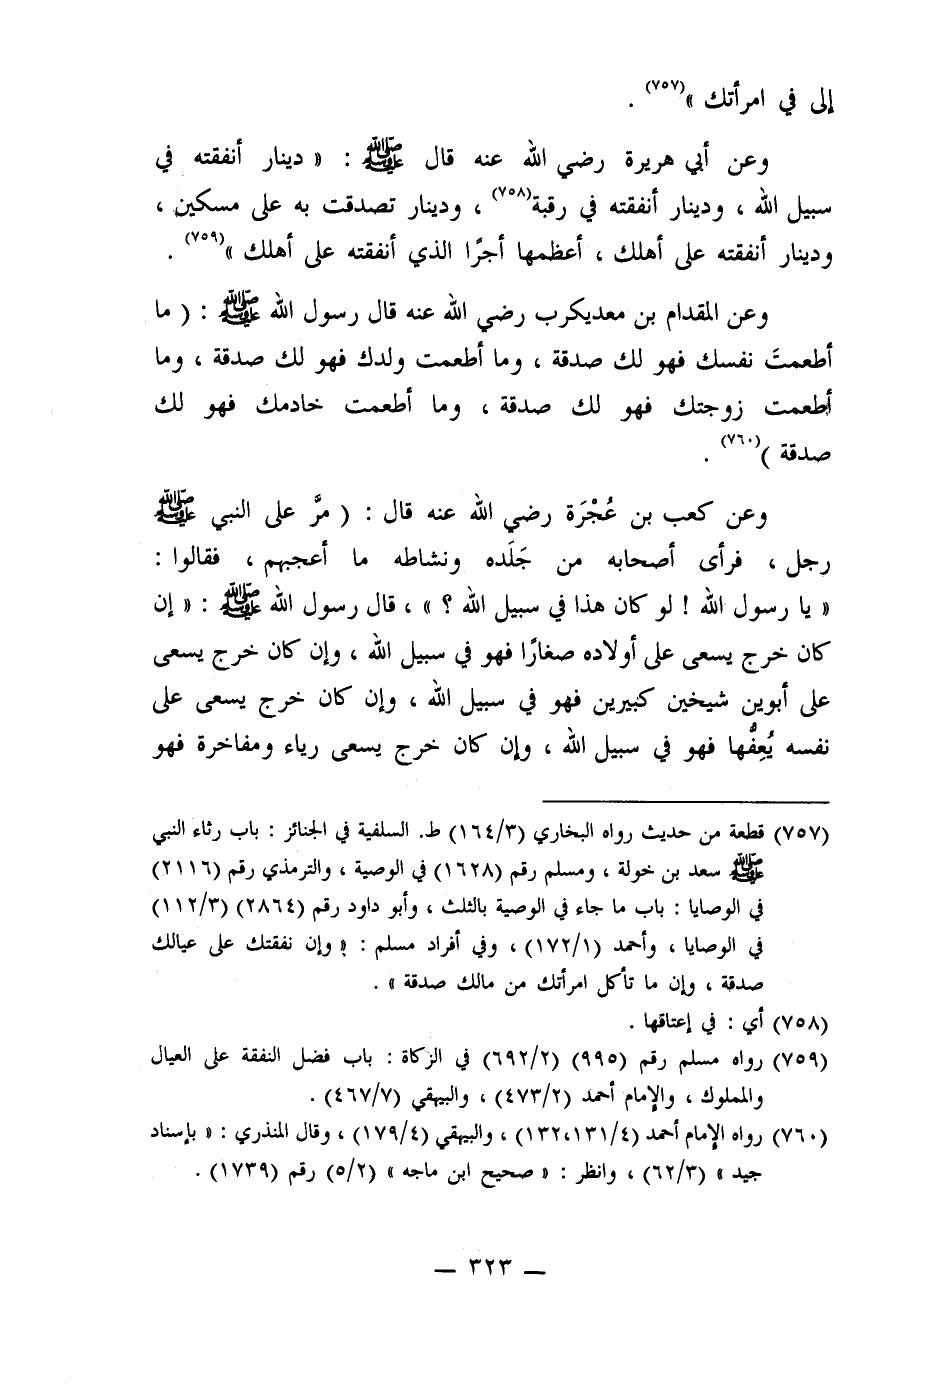 إلى في امرأتك »(٧٥٧) .
وعن أبي هريرة رضي الله عنه قال ﷺ : « دينار أنفقته في
سبيل الله ، ودينار أنفقته في رقبة(٧٥٨) ، ودينار تصدقت به على مسكين ،
ودينار أنفقته على أهلك ، أعظمها أجرًا الذي أنفقته على أهلك »(٧٥٩) .
وعن المقدام بن معديكرب رضي الله عنه قال رسول الله ﷺ : ( ما
أطعمتَ نفسك فهو لك صدقة ، وما أطعمت ولدك فهو لك صدقة ، وما
أطعمت زوجتك فهو لك صدقة ، وما أطعمت خادمك فهو لك
صدقة )(٧٦٠) .
وعن كعب بن عُجْرَة رضي الله عنه قال : ( مرَّ على النبي ﷺ
رجل ، فرأى أصحابه من جَلَده ونشاطه ما أعجبهم ، فقالوا :
« يا رسول الله ! لو كان هذا في سبيل الله ؟ » ، قال رسول الله ﷺ : « إن
كان خرج يسعى على أولاده صغارًا فهو في سبيل الله ، وإن كان خرج يسعى
على أبوين شيخين كبيرين فهو في سبيل الله ، وإن كان خرج يسعى على
نفسه يُعِفُّها فهو في سبيل الله ، وإن كان خرج يسعى رياء ومفاخرة فهو
(٧٥٧) قطعة من حديث رواه البخاري (١٦٤/٣) ط. السلفية في الجنائز : باب رثاء النبي
ﷺ سعد بن خولة ، ومسلم رقم (١٦٢٨) في الوصية ، والترمذي رقم (٢١١٦)
في الوصايا : باب ما جاء في الوصية بالثلث ، وأبو داود رقم (٢٨٦٤) (١١٢/٣)
في الوصايا ، وأحمد (١٧٢/١) ، وفي أفراد مسلم : « وإن نفقتك على عيالك
صدقة ، وإن ما تأكل امرأتك من مالك صدقة » .
(٧٥٨) أي : في إعتاقها .
(٧٥٩) رواه مسلم رقم (٩٩٥) (٦٩٢/٢) في الزكاة : باب فضل النفقة على العيال
والمملوك ، والإمام أحمد (٤٧٣/٢) ، والبيهقي (٤٦٧/٧) .
(٧٦٠) رواه الإمام أحمد (١٣٢،١٣١/٤) ، والبيهقي (١٧٩/٤) ، وقال المنذري : « بإسناد
جيد » (٦٢/٣) ، وانظر : « صحيح ابن ماجه » (٥/٢) رقم (١٧٣٩) .
— ٣٢٣ —